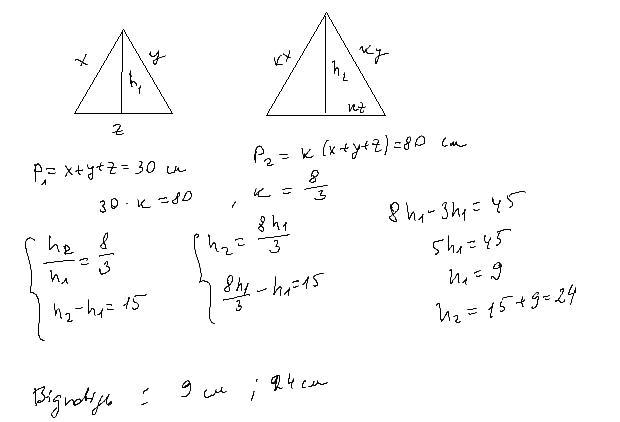 x y h₁ z
кx кy h₂ кz
P₁ = x+y+z = 30 см
P₂ = к (x+y+z) = 80 см
30 · к = 80 , к = 8/3
{ h₂/h₁ = 8/3
h₂ - h₁ = 15
{ h₂ = 8h₁/3
8h₁/3 - h₁ = 15
8h₁ - 3h₁ = 45
5h₁ = 45
h₁ = 9
h₂ = 15 + 9 = 24
Відповідь : 9 см ; 24 см